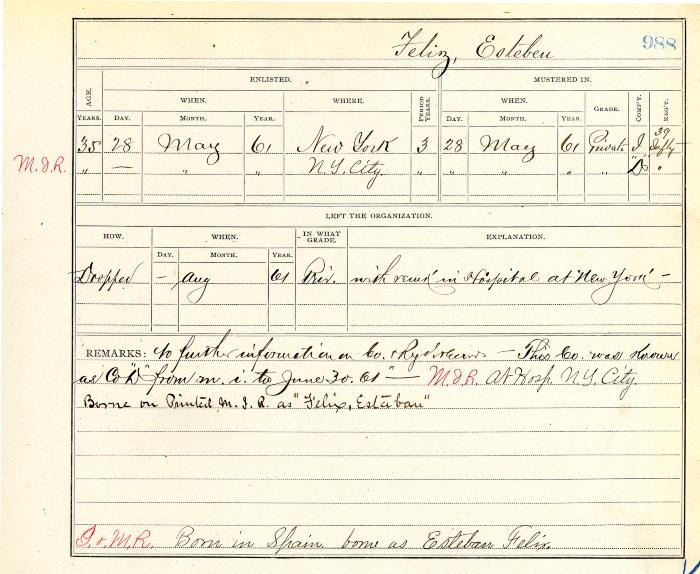 Felix, Esteben 988
ENLISTED. MUSTERED IN.
AGE. WHEN. WHERE. PERIOD YEARS. WHEN. GRADE. COMP'Y. REG'T.
YEARS. DAY. MONTH. YEAR. DAY. MONTH. YEAR.
35 28 May 61 New York 3 28 May 61 Private I 39 Infty
M.I.R. " — " " N.Y. City. " " " " " D "
LEFT THE ORGANIZATION.
HOW. WHEN. IN WHAT GRADE. EXPLANATION.
DAY. MONTH. YEAR.
Dropped — Aug 61 Priv. with remk in Hospital at New York —
REMARKS: No further information on Co. & Rg't records — This Co. was known
as Co "D" from m. i. to June 30. 61 — M.I.R. At Hosp. N.Y. City.
Borne on Printed M. I. R. as "Felix, Estaban"
D. & M.R. Born in Spain. borne as Esteban Felix.